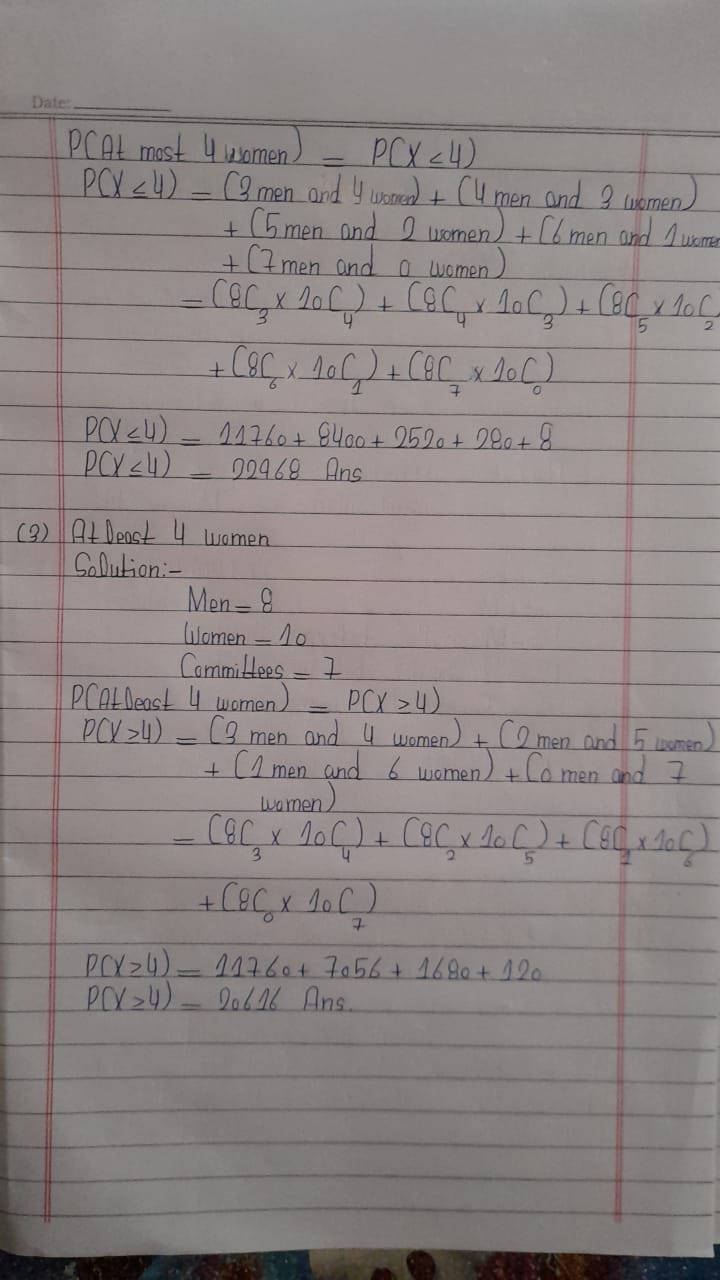 Date:
P(At most 4 women) = P(X ≤ 4)
P(X ≤ 4) = (3 men and 4 women) + (4 men and 3 women)
+ (5 men and 2 women) + (6 men and 1 women
+ (7 men and 0 women)
= (8C₃ x 10C₄) + (8C₄ x 10C₃) + (8C₅ x 10C₂
+ (8C₆ x 10C₁) + (8C₇ x 10C₀)
P(X ≤ 4) = 11760 + 8400 + 2520 + 280 + 8
P(X ≤ 4) = 22968 Ans
(3) At Least 4 women
Solution:-
Men = 8
Women = 10
Committees = 7
P(At Least 4 women) = P(X ≥ 4)
P(X ≥ 4) = (3 men and 4 women) + (2 men and 5 women)
+ (1 men and 6 women) + (0 men and 7
women)
= (8C₃ x 10C₄) + (8C₂ x 10C₅) + (8C₁ x 10C₆)
+ (8C₀ x 10C₇)
P(X ≥ 4) = 11760 + 7056 + 1680 + 120
P(X ≥ 4) = 20616 Ans.